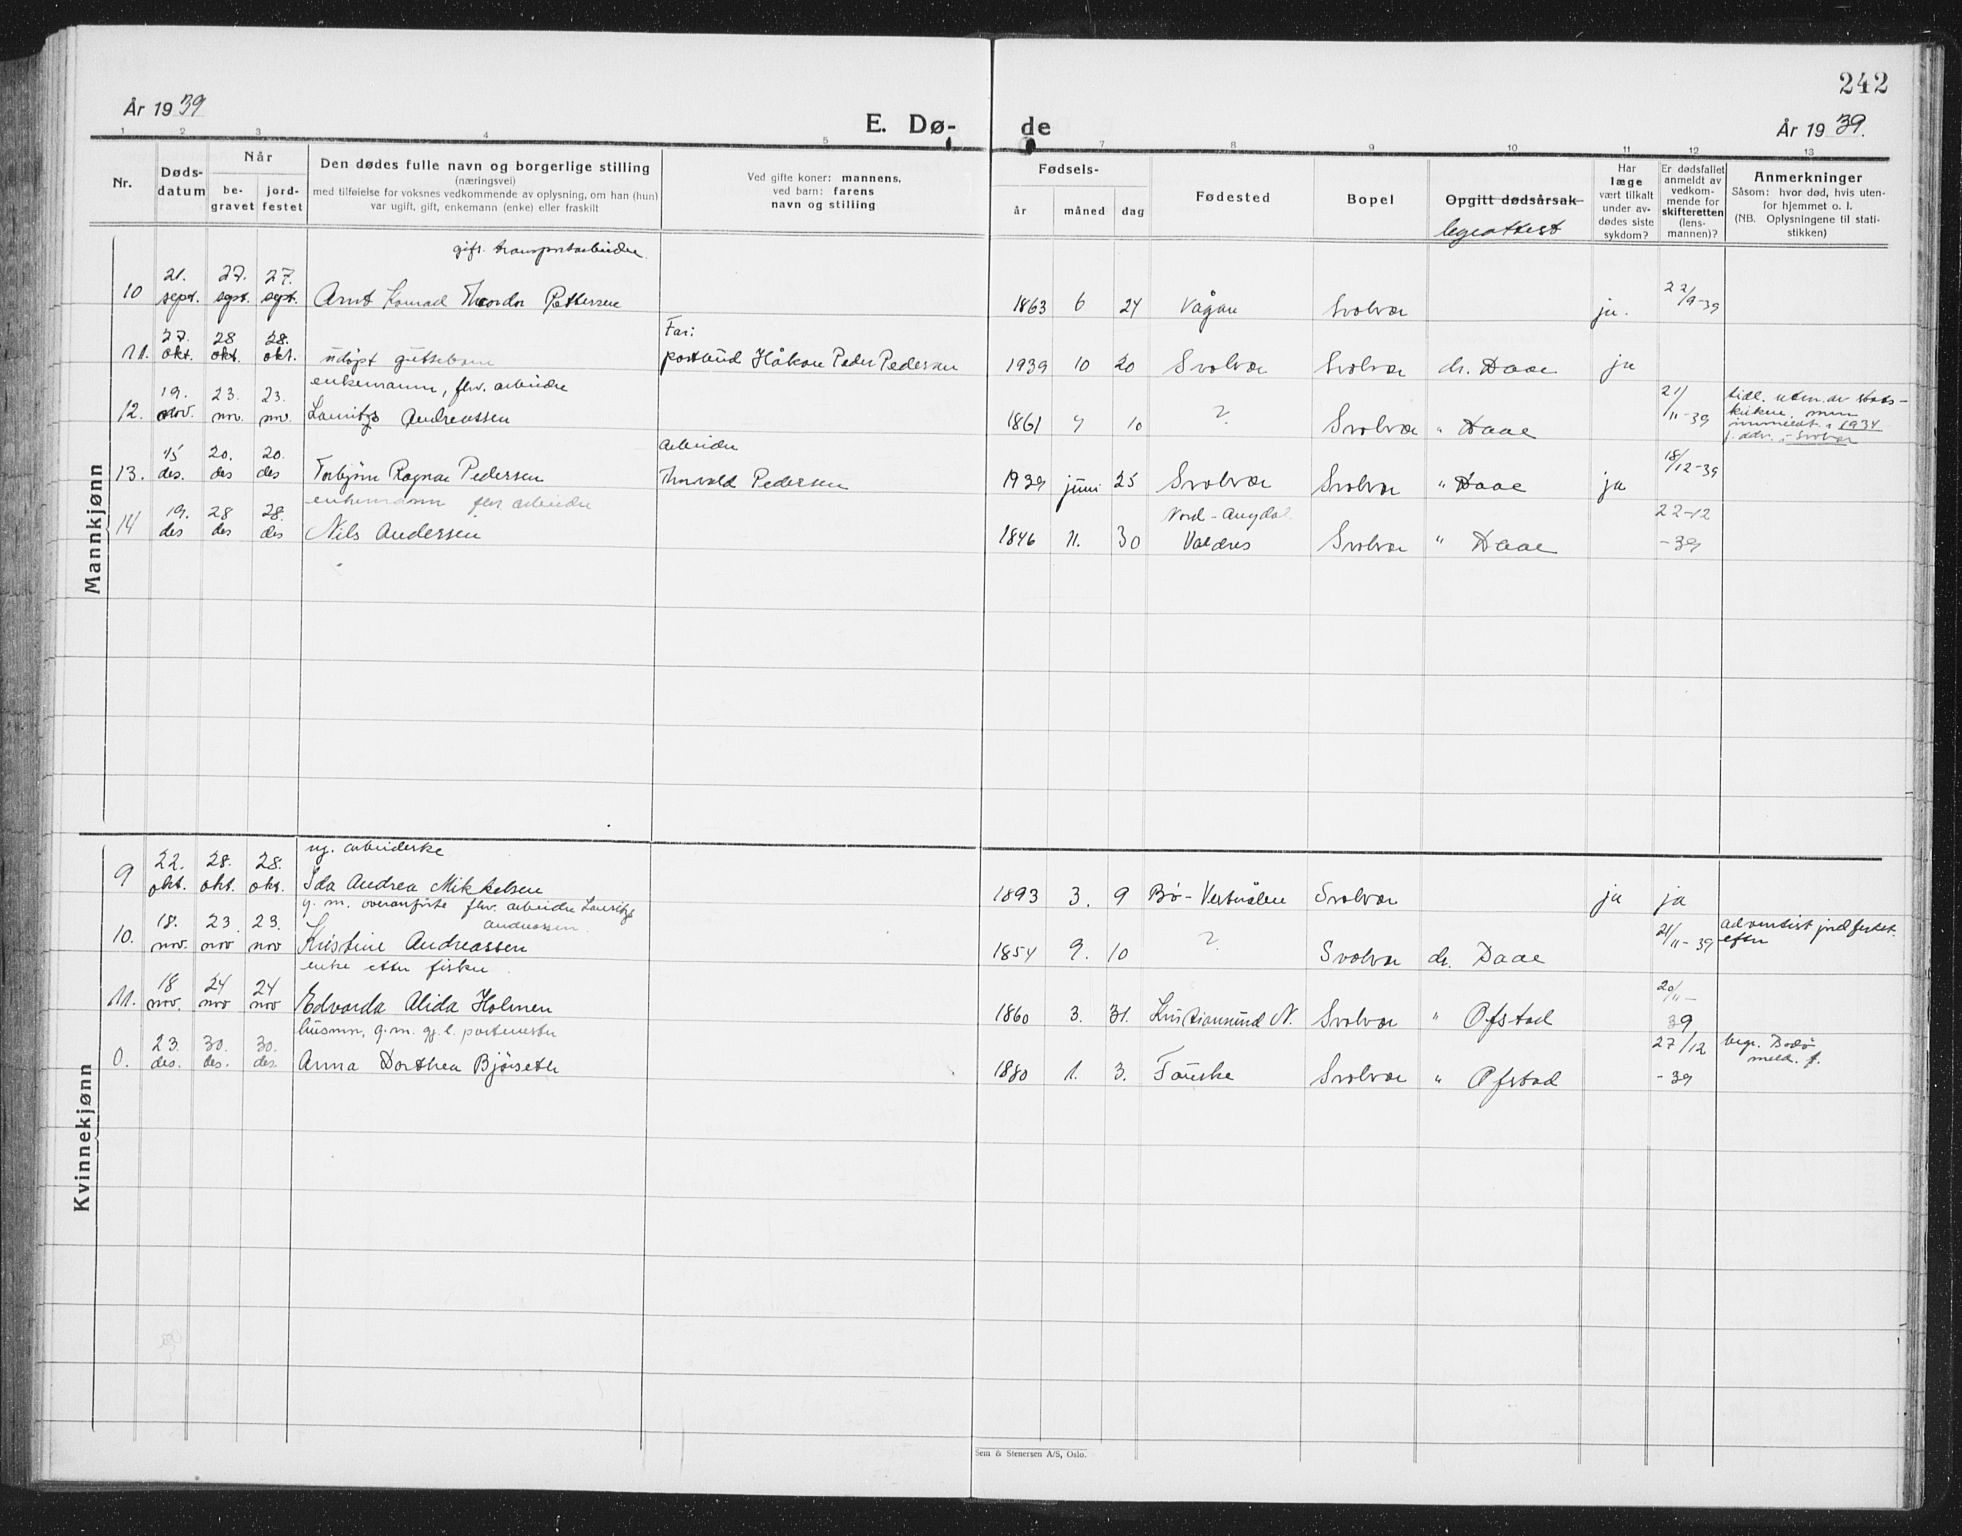 242
År 1939
E. Dø-
de
År 1939.
1 2 3 4 5 7 8 9 10 11 12 13
Nr.
Døds-
datum
Når
be-
gravet
jord-
festet
Den dødes fulle navn og borgerlige stilling
(næringsvei)
med tilføielse for voksnes vedkommende av oplysning, om han (hun)
var ugift, gift, enkemann (enke) eller fraskilt
Ved gifte koner: mannens,
ved barn: farens
navn og stilling
Fødsels-
år måned dag
Fødested
Bopel
Opgitt dødsårsak
legeattest
Har
læge
vært tilkalt
under av-
dødes siste
sykdom?
Er dødsfallet
anmeldt av
vedkom-
mende for
skifteretten
(lens-
mannen)?
Anmerkninger
Såsom: hvor død, hvis uten-
for hjemmet o. l.
(NB. Oplysningene til stati-
stikken)
Mannkjønn
gift. transportarbeider
21. 27. 27.
10 sept. sept. sept. Arnt Konrad Theodor Pettersen 1863 6 24 Vågan Svolvær ja. 22/9-39
27. 28 28. Far:
11. okt. okt. okt. udøpt guttebarn postbud Håkon Peder Pedersen 1939 10 20 Svolvær Svolvær dr. Daae ja
enkemann, fhv. arbeider
19. 23. 23.
12. nov. nov. nov. Lauritz Andreassen 1861 7 10 ? Svolvær " Daae 21/11-39
tidl. utm. av stats-
kirken, men
innmeldt i 1934
j. adv. i Svolvær
15 20. 20. arbeider
13. des. des des Torbjørn Ragnar Pedersen Thorvald Pedersen 1939 juni 25 Svolvær Svolvær " Daae ja 18/12-39
enkemann fhv arbeider
19. 28 28. Nord-Aurdal
14 des des des Nils Andersen 1846 11. 30 Valdres Svolvær " Daae 22-12
-39
Kvinnekjønn
ug. arbeiderske
22. 28. 28.
9 okt. okt. okt. Ida Andrea Mikkelsen 1893 3. 9 Bø-Vesterålen Svolvær ja ja
g. m. fhv. arbeider Lauritz
Andreassen.
18. 23. 23.
10. nov. nov nov Kristine Andreassen 1854 9. 10 ? Svolvær dr. Daae 21/11-39
adventist jordfestet.
enke etter fisker
18 24 24
11. nov. nov nov Edvarda Alida Holmen 1860 3. 31. Kristiansund N. Svolvær " Ofstad 20/11-
39
husmor, g. m. postmester
23. 30. 30.
0. des. des. des. Anna Dorthea Bjørseth 1880 1. 3. Fauske Svolvær " Ofstad 27/12
-39
begr. Bodø
meld. f.
Sem & Stenersen A/S, Oslo.